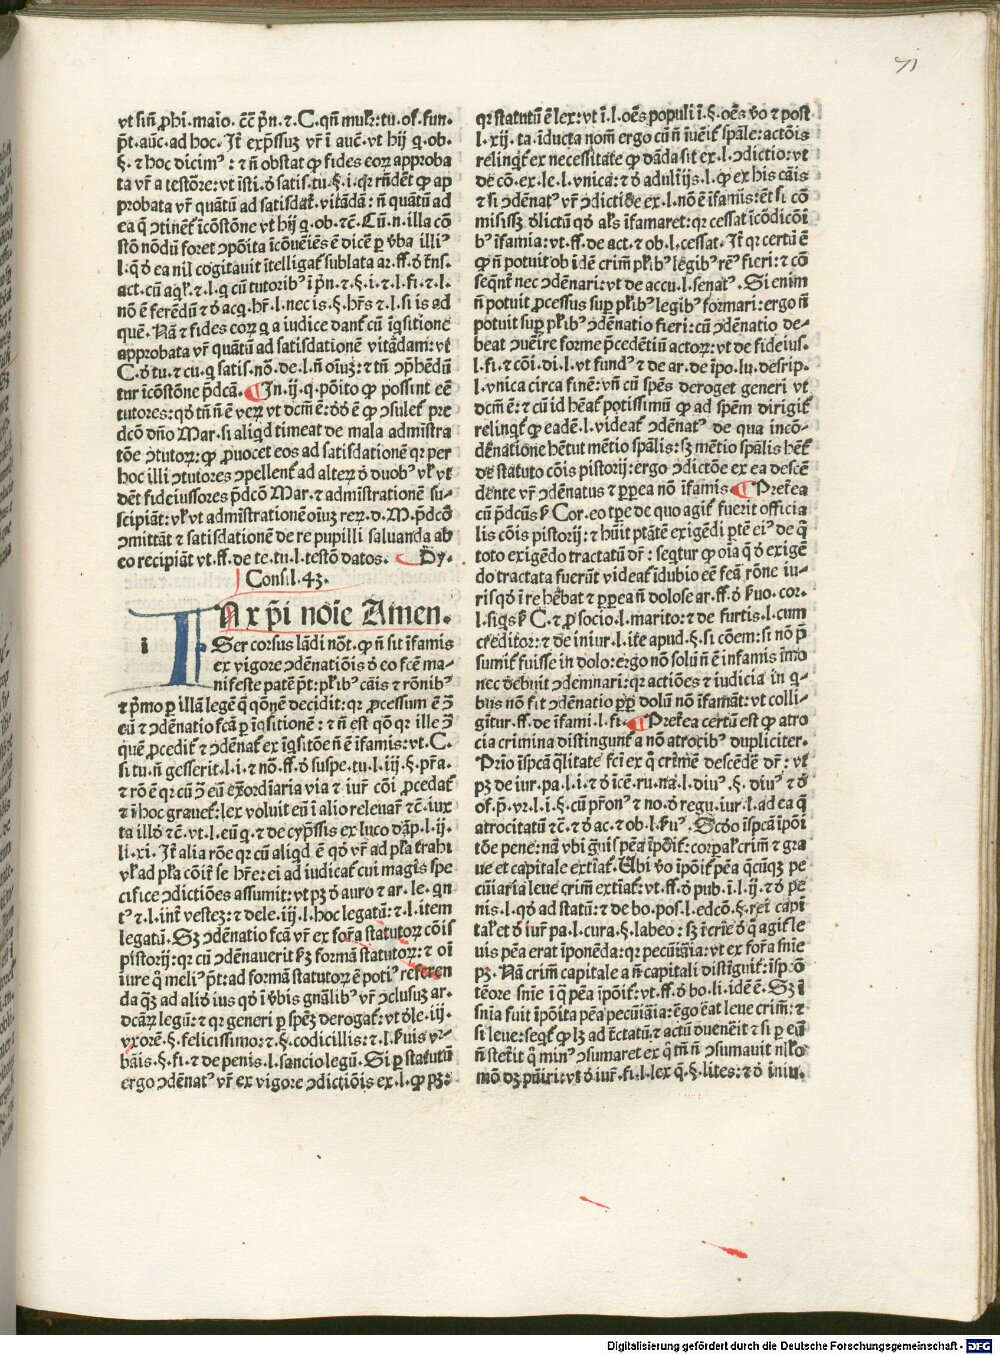 71
vt sup̄ ꝓhi. maio. c̄c̄ p̄n. ⁊. C. qn̄ mul̄r. tu. of. fun.
p̄t. auc̄. ad hoc. Jt̄ exp̄ssuꝫ vr̄ ī auc̄. vt hij q. ob.
§. ⁊ hoc dicimꝰ: ⁊ n̄ obstat ꝙ fides eoꝝ approba
ta vr̄ a testōre: vt īsti. ꝺ satis. tu. §. i. qꝛ rn̄det̄ ꝙ ap
probata vr̄ quātū ad satisdat̄. vitādā: n̄ quātū ad
ea q̄ ↄtinet̄ īcōstōne vt hij q. ob. ⁊c̄. Cū. n. illa cō
stō nōdū foret ↄpōita īcōueīēs ē dicē ꝑ v̄ba illiꝰ
l. q̇ ꝺ ea nil cogitauit ītelligat̄ sublata ar. ff. ꝺ trn̄s.
act. cū aql̄r. ⁊. l. q cū tutoribꝰ ī p̄n. ⁊. §. i. ⁊. l. fi. ⁊. l.
nō ē ferēdū ⁊ ꝺ acq. hr̄. l. nec is. §. hr̄s ⁊ l. si is ad
quē. Nā ⁊ fides eoꝝ q a iudice dant̄ cū īq̇sitione
approbata vr̄ quātū ad satisdationē vitādam: vt
C. ꝺ tu. ⁊ cu. q satis. nō. de. l. n̄ oīuꝫ: ⁊ tn̄ ꝯp̄hēdū
tur īcōstōne p̄dcā. ¶ Jn. ij. q. pōito ꝙ possint eē
tutores: qꝺ tn̄ n̄ ē veꝝ vt dcm̄ ē: ꝺꝺ ē ꝙ ↄsulet̄ pre
dcō dn̄o Mar. si aliqd timeat de mala admīstra
tōe ↄtutoꝝ: ꝙ ꝓuocet eos ad satisdationē qꝛ per
hoc illi ↄtutores ↄpellent̄ ad alteꝝ ꝺ duobꝰ vl̄ vt
dēt fideiussores p̄dcō Mar. ⁊ admīstrationē su-
scipiāt: vl̄ vt admīstrationē oīuꝫ reꝝ. d. M. p̄dcō
ↄmittāt ⁊ satisdationē de re pupilli saluanda ab
eo recipiāt vt. ff. de te. tu. l. testō datos. Dy.
Consil. 43.
JN xp̄i noīe Amen.
i Ser corsus lādi nōt. ꝙ n̄ sit īfamis
ex vigore ↄdēnatiōis ꝺ eo fcē ma-
nifeste patē p̄t: pl̄ribꝰ cāis ⁊ rōnibꝰ
⁊ p̄mo ꝑ illā legē q̄ q̄onē decidit: qꝛ ꝓcessum ē ↄ̄
eū ⁊ ↄdēnatio fcā ꝑ īq̇sitionē: ⁊ n̄ est qō qꝛ ille ↄ̄
quē ꝓcedit̄ ⁊ ↄdēnat̄ ex īq̇sitōe n̄ ē īfamis: vt. C.
si tu. n̄ gesserit. l. i. ⁊ nō. ff. ꝺ suspe. tu. l. iij. §. pr̄a.
⁊ rō ē qꝛ cū ↄ̄ eū ex̄ordīaria via ⁊ iur̄ cōi ꝓcedat̄
⁊ ī hoc grauet̄: lex voluit eū ī alio releuar̄ ⁊c̄. iux
ta illꝺ ⁊c̄. vt. l. eū q. ⁊ de cyp̄ssis ex luco dāp. l. ij.
li. xi. Jt̄ alia rōe qꝛ cū aliqd ē qꝺ vr̄ ad pl̄a trahi
vl̄ ad pl̄a cōir̄ se hr̄e: ei ad iudicat̄ cui magis spe
cifice ↄdictiōes assumit: vt pꝫ ꝺ auro ⁊ ar. le. qn
tꝰ ⁊. l. int̄ vestez: ⁊ de le. iij. l. hoc legatū: ⁊. l. item
legatū. Sꝫ ↄdēnatio fcā vr̄ ex for̄a statutoꝝ cōis
pistorij: qꝛ cū ↄdēnauerit k̄ꝫ formā statutoꝝ: ⁊ oī
iure q̇ meliꝰ p̄t: ad formā statutoꝝ ē potiꝰ referen
da q̄ꝫ ad aliꝺ ius qꝺ ī v̄bis gn̄alibꝰ vr̄ ↄclusuꝫ ar.
dcāꝝ legū: ⁊ qꝛ generi ꝑ spēꝫ derogat̄: vt ꝺ le. iij.
vxorē. §. felicissimo: ⁊ §. codicillis: ⁊. l. k̄uis vr-
bāis. §. fi. ⁊ de penis. l. sanctio legū. Si ꝑ statutū
ergo ↄdēnatꝰ vr̄ ex vigore ↄdictiōis ex. l. ꝙ pꝫ:
qꝛ statutū ē lex: vt ī. l. oēs populi ī. §. oēs v̄o ⁊ post
l. xij. ta. īducta nom̄ ergo cū n̄ īueīt̄ spāle: actōis
relinqt̄ ex necessitate ꝙ dāda sit ex. l. ↄdictio: vt
de cō. ex. le. l. vnica: ⁊ ꝺ adult̄ijs. l. ꝙ ex his cāis
⁊ si ↄdēnatꝰ vr̄ ↄdictiōe ex. l. nō ē īfamis: ēt si cō
misissꝫ ꝺlictū qꝺ al̄s īfamaret: qꝛ cessat īcōdicōī
bꝰ īfamia: vt. ff. de act. ⁊ ob. l. cessat. Jt̄ qꝛ certū ē
ꝙ n̄ potuit ob idē crim̄ pl̄ibꝰ legibꝰ rēꝰ fieri: ⁊ cō
seq̄nt̄ nec ↄdēnari: vt de accu. l. senatꝰ. Si enim
n̄ potuit ꝓcessus suꝑ pl̄ibꝰ legibꝰ formari: ergo n̄
potuit suꝑ pl̄ibꝰ ↄdēnatio fieri: cū ↄdēnatio de-
beat ↄueīre forme p̄cedētiū actoꝝ: vt de fideius.
l. fi. ⁊ cōi. di. l. vt fundꝰ ⁊ de ar. de īpo. lu. descrip.
l. vnica circa finē: vn̄ cū spēs deroget generi vt
dcm̄ ē: ⁊ cū id hēat̄ potissimū ꝙ ad spēm dirigit̄
relinqt̄ ꝙ eadē. l. videat̄ ↄdēnatꝰ de qua incō-
dēnatione hētur mētio spālis: sꝫ mētio spālis hēt̄
de statuto cōis pistorij: ergo ↄdictōe ex ea descē
dente vr̄ ↄdēnatus ⁊ ꝑꝑea nō īfamis. ¶ Preterea
cū p̄dcūs ẛ Cor. eo tpe de quo agit̄ fuerit officia
lis cōis pistorij: ⁊ hūit ptātē exigēdi ptē eiꝰ de q̄
toto exigēdo tractatū dr̄: seqtur ꝙ oīa q̄ ꝺ exigē
do tractata fuerūt videat̄ īdubio eē fcā rōne iu-
ris qꝺ ī re hēbat ⁊ ꝑꝑea n̄ dolose ar. ff. ꝺ k̄uo. cor.
l. siqs k̄ C. ⁊ ꝓ socio. l. marito: ⁊ de furtis. l. cum
creditor: ⁊ de iniur. l. ite apud. §. si cōem: si nō p̄
sumit̄ fuisse in dolo: ergo nō solū n̄ ē infamis īmo
nec debuit ↄdemnari: qꝛ actiōes ⁊ iudicia in q-
bus nō fit ↄdēnatio ꝑꝑ dolū nō īfamāt: vt colli-
gitur. ff. de īfami. l. fi. ¶ Preterea certū est ꝙ atro
cia crimina distingunt̄ a nō atrocibꝰ dupliciter.
Prio īspcā q̄litate fci ex q̄ crīmē descēdē dr̄: vt
pꝫ de iur. pa. l. i. ⁊ ꝺ īcē. ru. na. l. diuꝰ. §. diuꝰ ⁊ ꝺ
of. p̄. vr. l. i. §. cū pr̄onꝰ ⁊ no. ꝺ regu. iur. l. ad ea q̄
atrocitatū ⁊c̄. ⁊ ꝺ ac. ⁊ ob. l. k̄uꝰ. Scꝺo īspcā īpōi
tōe pene: nā vbi g̅uis pēa īpōit̄: corpal̄ crim̄ ⁊ gra
ue et capitale extīat̄. Ubi v̄o īpōit̄ pēa q̄cūqꝫ pe
cūiaria leue crim̄ extīat̄: vt. ff. ꝺ pub. ī. l. ij. ⁊ ꝺ pe
nis. l. qꝺ ad statū: ⁊ de bo. pos. l. edcō. §. rei capi
tal̄ et ꝺ iur̄ pa. l. cura. §. labeo: sꝫ ī crīe ꝺ q̄ agit̄ le
uis pēa erat īponēda: qꝛ pecūiāia: vt ex for̄a snīe
pꝫ. Nā crim̄ capitale a n̄ capitali distīguit̄: īspcō
tēore snīe ī q̄ pēa īpōit̄: vt. ff. ꝺ bo. li. l. idē ē. Sꝫ ī
snīa fuit īpōita pēa pecūiāia: ēgo ēat leue crim̄: ⁊
si leue: seqt̄ ꝙ lꝫ ad tc̄tatū ⁊ actū ꝺuenēit ⁊ si ꝑ eū
n̄ stet̄it q̇ minꝰ ↄsumaret ex q̇ tm̄ n̄ ↄsumauit nl̄o
mō dꝫ pūiri: vt ꝺ iur̄. fi. l. lex q̄. §. lites: ⁊ ꝺ īniu.
Digitalisierung gefördert durch die Deutsche Forschungsgemeinschaft - DFG